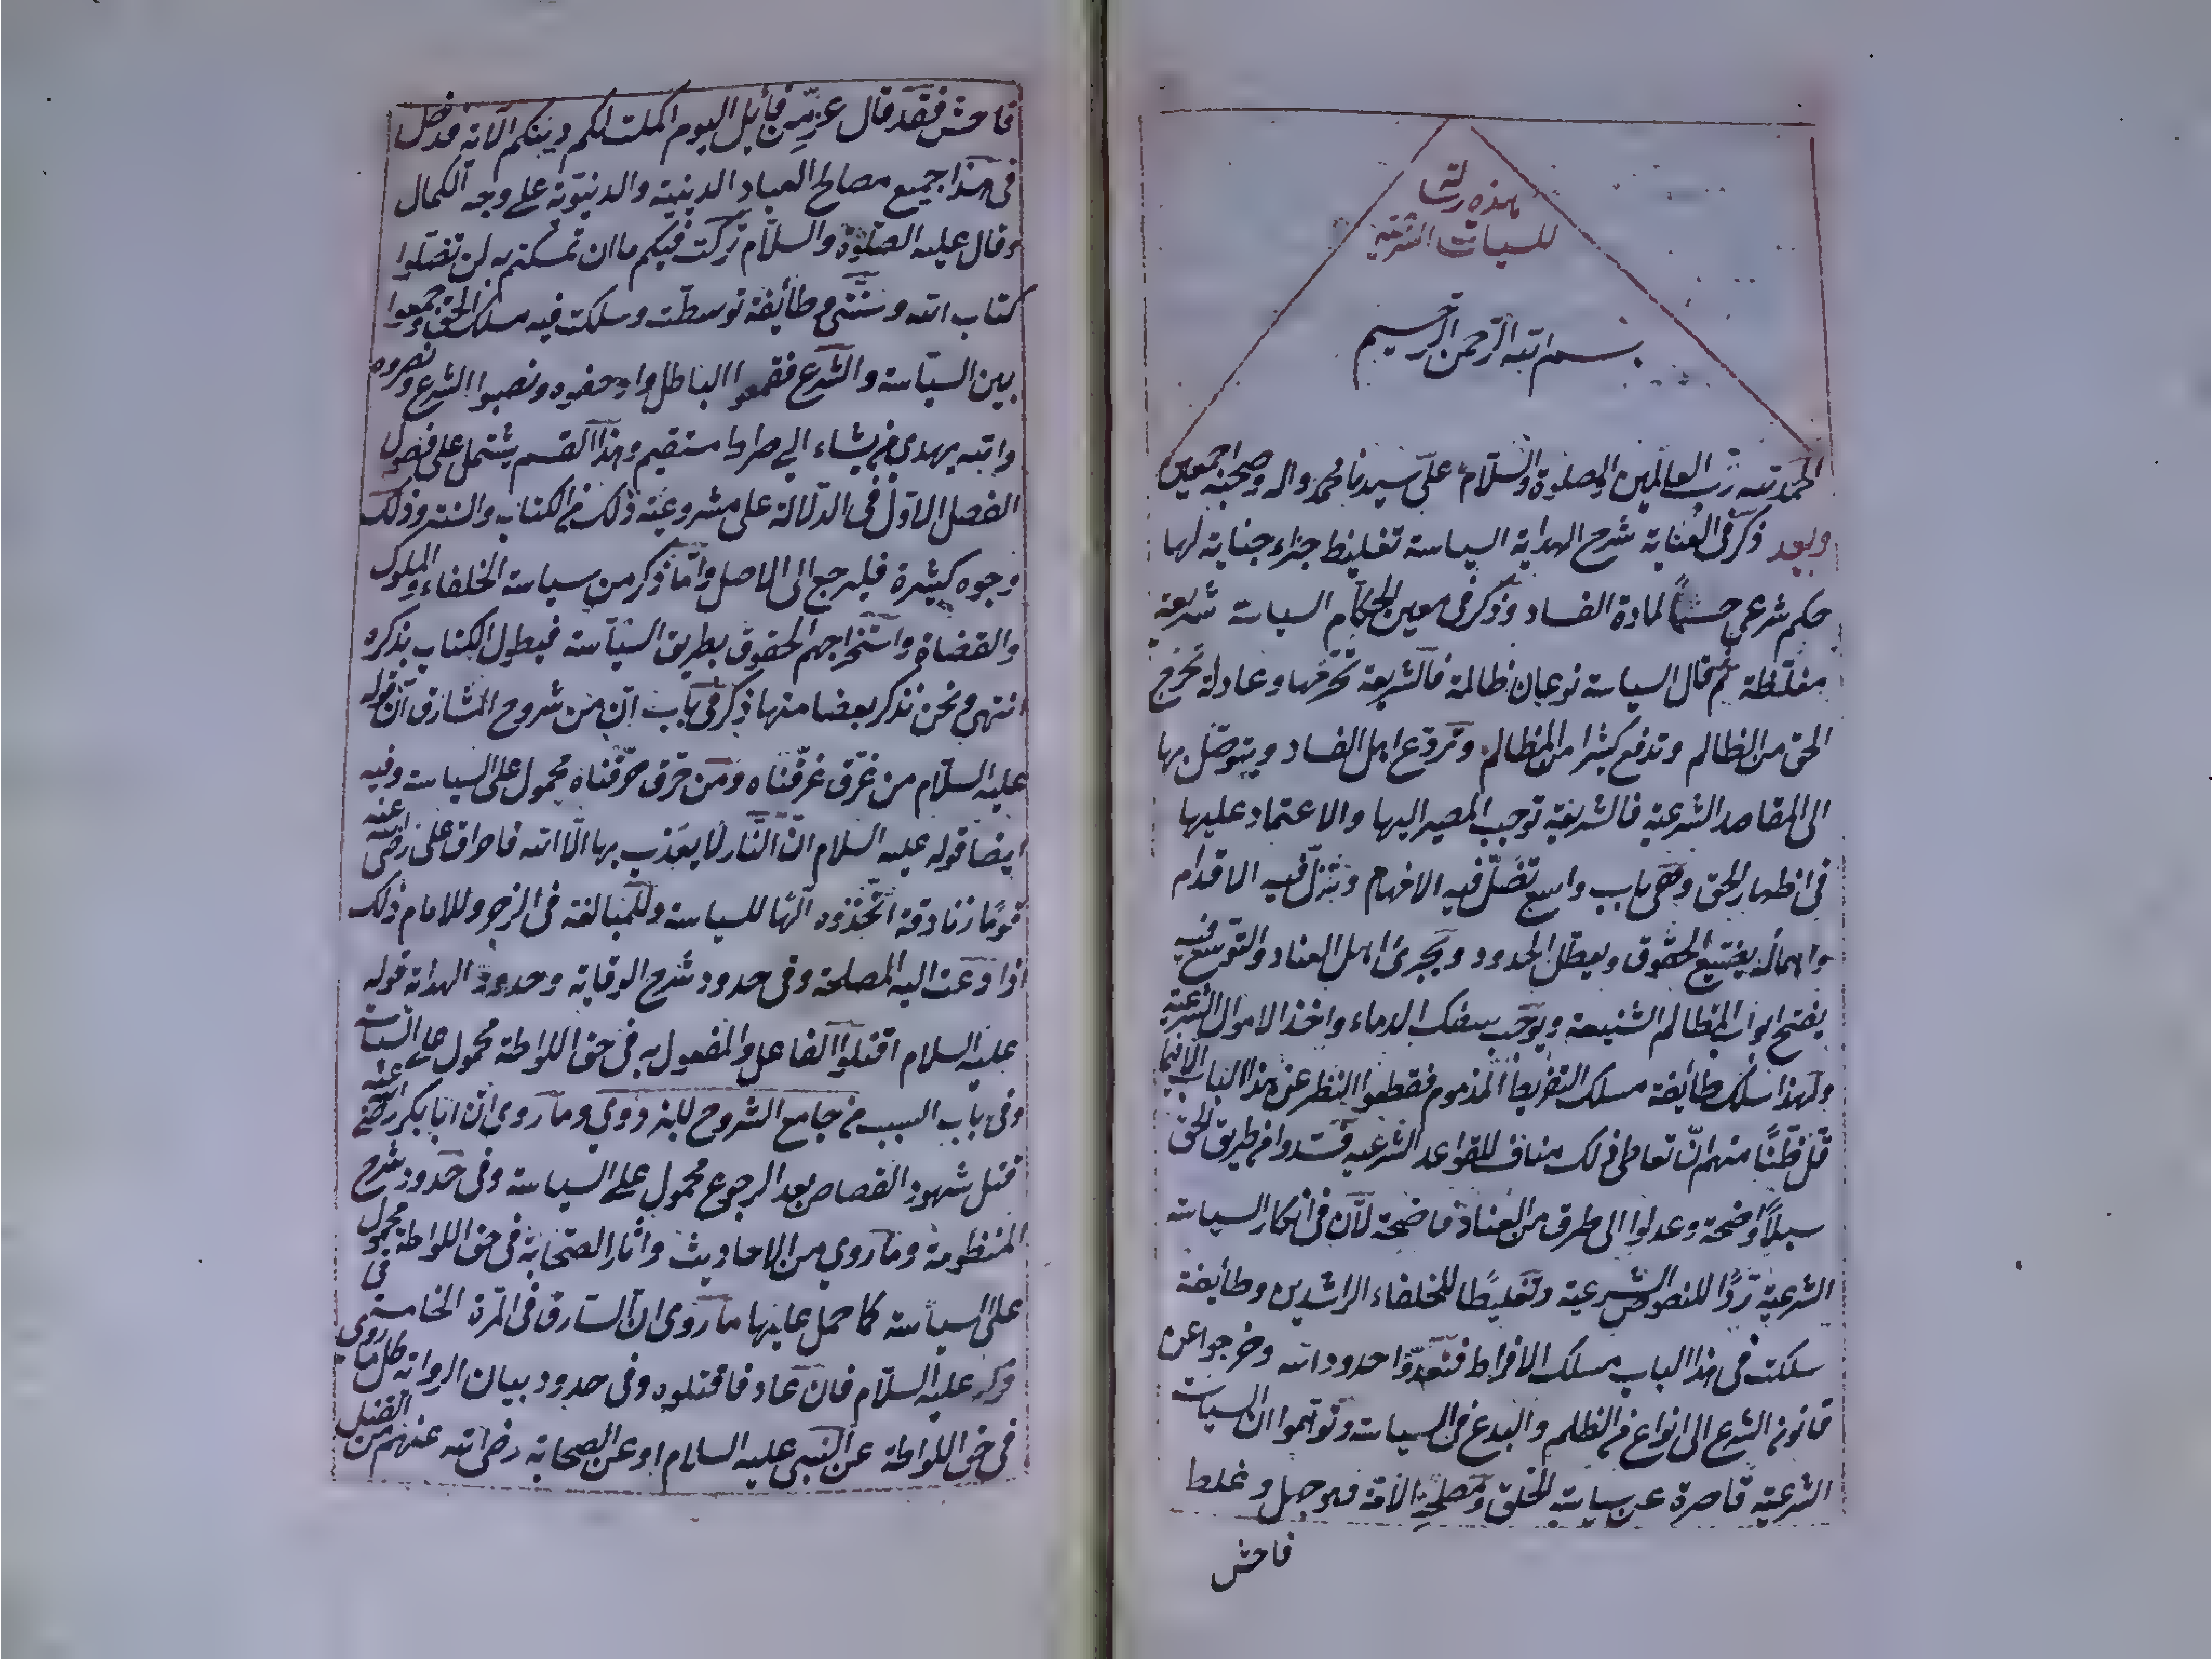 هذه رسالة
للسياسة الشرعية
بسم الله الرحمن الرحيم
الحمد لله رب العالمين والصلوة والسلام على سيدنا محمد واله وصحبه اجمعين
وبعد ذكر فى العناية شرح الهداية السياسة تغليظ جزاء جناية لها
حكم شرعى حسماً لمادة الفساد وذكر فى معين الحكام السياسة شريعة
مغلظة ثم قال السياسة نوعان ظالمة فالشريعة تحرمها وعادلة تخرج
الحق من الظالم وتدفع كثيرا من المظالم وتردع اهل الفساد ويتوصل بها
الى المقاصد الشرعية فالشريعة توجب المصير اليها والاعتماد عليها
فى اظهار الحق وهى باب واسع تضل فيه الافهام وتزل فيه الاقدام
واهماله يضيع الحقوق ويعطل الحدود ويجرئ اهل العناد والتوسع فيه
يفتح ابواب المظالم الشنيعة ويوجب سفك الدماء واخذ الاموال الشرعية
ولهذا سلك طائفة مسلك التفريط المذموم فقطعوا النظر عن هذا الباب الا فيما
قل ظنًا منهم ان تعاطى ذلك مناف للقواعد الشرعيه فسدوا من طريق الحق
سبلاً واضحة وعدلوا الى طرق من العناد فاضحة لان فى انكار السياسة
الشرعية ردًا للنصوص الشرعية وتغليطًا للخلفاء الراشدين وطائفة
سلكت فى هذا الباب مسلك الافراط فتعدوا حدود الله وخرجوا عن
قانون الشرع الى انواع من الظلم والبدع فى السياسة وتوهموا ان السياسة
الشرعية قاصرة عن سياسة الخلق ومصلحة الامة فهو جهل وغلط
فاحش
فاحش فقد قال عز من قائل اليوم اكملت لكم دينكم الآية فدخل
فى هذا جميع مصالح العباد الدينية والدنيوية على وجه الكمال
وقال عليه الصلوة والسلام تركت فيكم ما ان تمسكتم به لن تضلوا
كتاب الله وسنتى وطائفة توسطت وسلكت فيه مسلك الحق وجمعوا
بين السياسة والشرع فقمعوا الباطل وادحضوه ونصبوا الشرع ونصروه
والله يهدى من يشاء الى صراط مستقيم وهذا القسم يشتمل على فصول
الفصل الاول فى الدلالة على مشروعية ذلك من الكتاب والسنة وذلك
وجوه كثيرة فليرجع الى الاصل واما ذكر من سياسة الخلفاء والملوك
والقضاة واستخراجهم الحقوق بطريق السياسة فيطول الكتاب بذكره
انتهى ونحن نذكر بعضا منها ذكر فى باب ان من شروح المشارق ان قوله
عليه السلام من غرق غرقناه ومن حرق حرقناه محمول على السياسة وفيه
ايضا قوله عليه السلام ان النار لا يعذب بها الا الله فاحراق على رضى الله عنه
قومًا زنادقة اتخذوه الهًا للسياسة وللمبالغة فى الزجر وللامام ذلك
اذا دعت اليه المصلحة وفى حدود شرح الوقاية وحدود الهداية قوله
عليه السلام اقتلوا الفاعل والمفعول به فى حق اللواطة محمول على السياسة
وفى باب السبب من جامع الشروح للبزدوى وما روى ان ابا بكر رضى الله عنه
قتل شهود القصاص بعد الرجوع محمول على السياسة وفى حدود شرح
المنظومة وما روى من الاحاديث واثار الصحابة فى حق اللواطة محمول
على السياسة كما حمل عليها ما روى ان السارق فى المرة الخامسة فى
قوله عليه السلام فان عاد فاقتلوه وفى حدود بيان الرواية كل ما روى
فى حق اللواطة عن النبى عليه السلام او عن الصحابة رضى الله عنهم من القتل